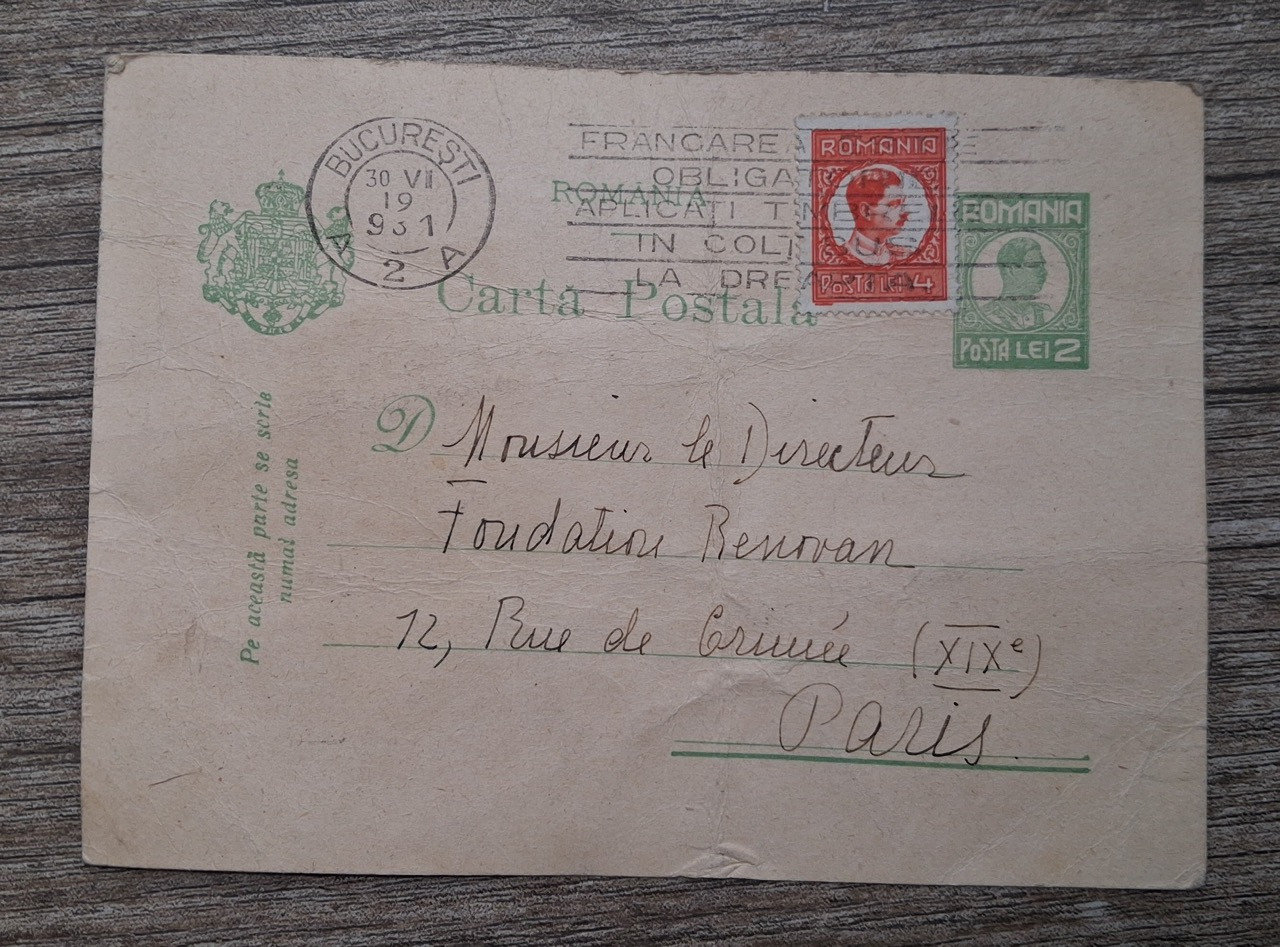 BUCUREȘTI
30 VII
19
931
A 2 A
FRANCARE
OBLIGAT
APLICATI TIMBR
IN COLT SUS
LA DREAPTA
ROMANIA
POSTA LEI 4
ROMANIA
POSTA LEI 2
ROMÂNIA
Cartă Poștală
Pe această parte se scrie
numai adresa
D Monsieur le Directeur
Fondation Renovan
12, Rue de Crimée (XIXe)
Paris.